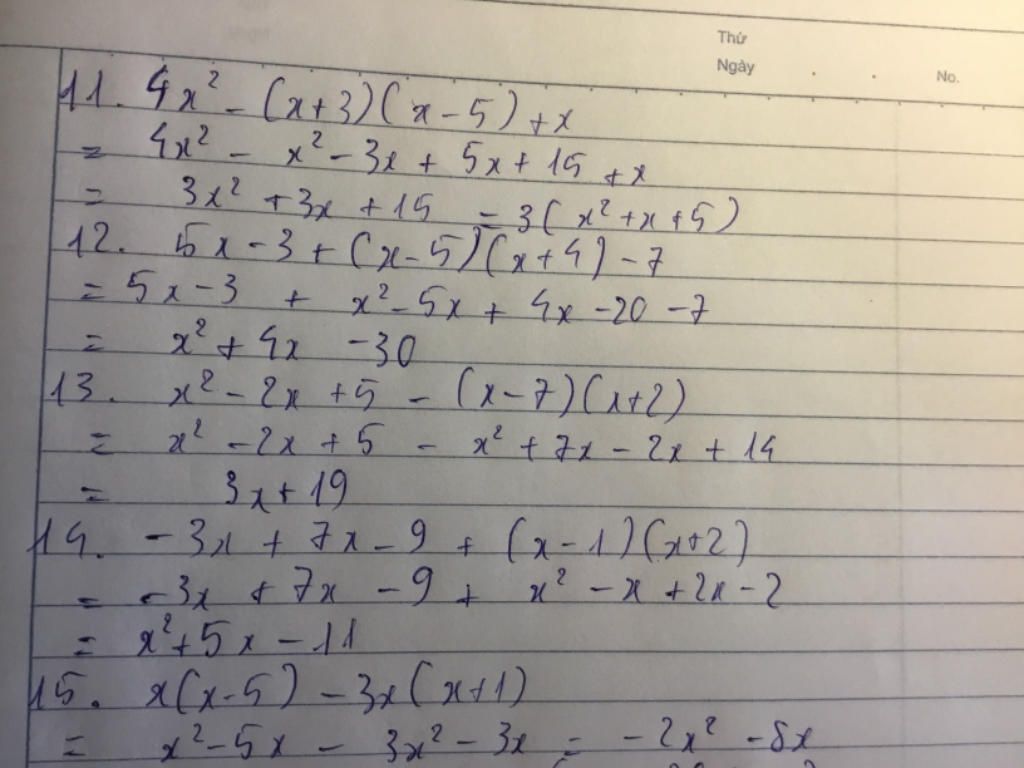 Thứ
Ngày
No.
11. 4x² - (x+3)(x-5) +x
= 4x² - x² - 3x + 5x + 15 +x
= 3x² + 3x + 15 = 3(x²+x+5)
12. 5x - 3 + (x-5)(x+4) - 7
= 5x - 3 + x² - 5x + 4x - 20 - 7
= x² + 4x - 30
13. x² - 2x + 5 - (x-7)(x+2)
= x² - 2x + 5 - x² + 7x - 2x + 14
= 3x + 19
14. - 3x + 7x - 9 + (x-1)(x+2)
= - 3x + 7x - 9 + x² - x + 2x - 2
= x² + 5x - 11
15. x(x-5) - 3x(x+1)
= x² - 5x - 3x² - 3x = - 2x² - 8x